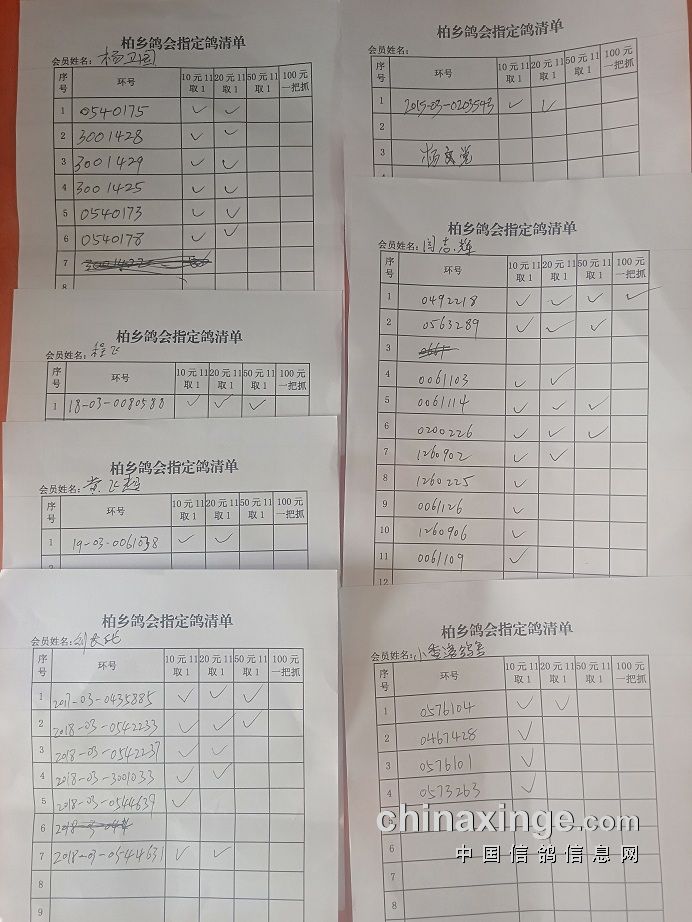 柏乡鸽会指定鸽清单
会员姓名：杨卫国
序号 环号 10元11取1 20元11取1 50元11取1 100元一把抓
1 0540175 ✓ ✓
2 3001428 ✓ ✓
3 3001429 ✓ ✓
4 3001425 ✓ ✓
5 0540173 ✓ ✓
6 0540178 ✓ ✓
7
8
柏乡鸽会指定鸽清单
会员姓名：
序号 环号 10元11取1 20元11取1 50元11取1 100元一把抓
1 2015-03-0203543 ✓ ✓
2
3 杨文党
柏乡鸽会指定鸽清单
会员姓名：程飞
序号 环号 10元11取1 20元11取1 50元11取1 100元一把抓
1 18-03-0080588 ✓ ✓ ✓
柏乡鸽会指定鸽清单
会员姓名：闫志辉
序号 环号 10元11取1 20元11取1 50元11取1 100元一把抓
1 0492218 ✓ ✓ ✓ ✓
2 0563289 ✓ ✓ ✓
3
4 0061103 ✓ ✓
5 0061114 ✓ ✓ ✓
6 0200226 ✓ ✓ ✓
7 1260902 ✓ ✓
8 1260225 ✓
9 0061126 ✓
10 1260906 ✓
11 0061109 ✓
12
柏乡鸽会指定鸽清单
会员姓名：黄飞
序号 环号 10元11取1 20元11取1 50元11取1 100元一把抓
1 19-03-0061038 ✓ ✓
2
柏乡鸽会指定鸽清单
会员姓名：刘
序号 环号 10元11取1 20元11取1 50元11取1 100元一把抓
1 2017-03-0435885 ✓ ✓ ✓
2 2018-03-0542233 ✓ ✓ ✓
3 2018-03-0542237 ✓ ✓
4 2018-03-3001033 ✓ ✓
5 2018-03-0544639 ✓
6
7 2018-03-0544631 ✓ ✓
8
9
柏乡鸽会指定鸽清单
会员姓名：小
序号 环号 10元11取1 20元11取1 50元11取1 100元一把抓
1 0576104 ✓ ✓
2 0467428 ✓
3 0576101 ✓
4 0573263 ✓
6
7
8
9
chinaxinge.com
中国信鸽信息网